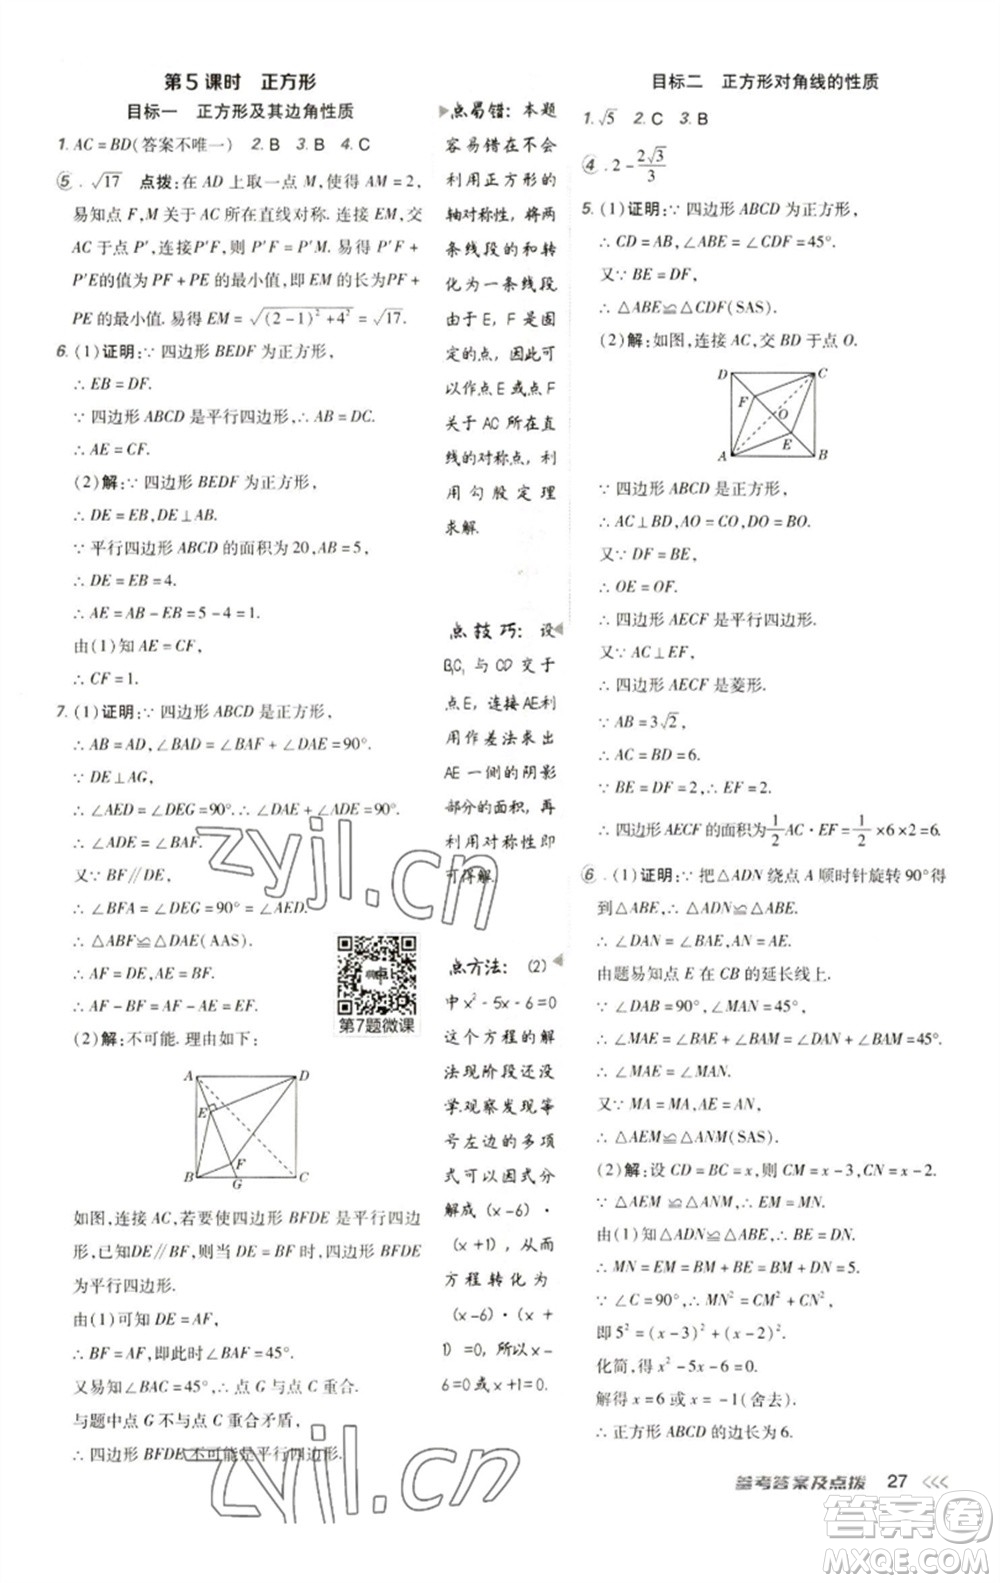 第5课时　正方形
目标一　正方形及其边角性质
1. AC＝BD(答案不唯一)　2. B　3. B　4. C
5. √17　点拨：在 AD 上取一点 M，使得 AM＝2，
易知点 F，M 关于 AC 所在直线对称. 连接 EM，交
AC 于点 P′，连接P′F，则 P′F＝P′M. 易得 P′F＋
P′E的值为 PF＋PE 的最小值，即 EM 的长为PF＋
PE 的最小值. 易得 EM＝√((2－1)²＋4²)＝√17.
6. (1)证明：∵ 四边形 BEDF 为正方形，
∴ EB＝DF.
∵ 四边形 ABCD 是平行四边形，∴ AB＝DC.
∴ AE＝CF.
(2)解：∵ 四边形 BEDF 为正方形，
∴ DE＝EB，DE⊥AB.
∵ 平行四边形 ABCD 的面积为 20，AB＝5，
∴ DE＝EB＝4.
∴ AE＝AB－EB＝5－4＝1.
由(1)知 AE＝CF，
∴ CF＝1.
7. (1)证明：∵ 四边形 ABCD 是正方形，
∴ AB＝AD，∠BAD＝∠BAF＋∠DAE＝90°.
∵ DE⊥AG，
∴ ∠AED＝∠DEG＝90°. ∴ ∠DAE＋∠ADE＝90°.
∴ ∠ADE＝∠BAF.
又∵ BF∥DE，
∴ ∠BFA＝∠DEG＝90°＝∠AED.
∴ △ABF≌△DAE(AAS).
∴ AF＝DE，BF＝AE.
∴ AF－BF＝AF－AE＝EF.
第7题微课
(2)解：不可能. 理由如下：
A
D
E
F
B
G
C
如图，连接 AC，若要使四边形 BFDE 是平行四边
形，已知DE∥BF，则当 DE＝BF 时，四边形 BFDE
为平行四边形.
由(1)可知 DE＝AF，
∴ BF＝AF，即此时∠BAF＝45°.
又易知∠BAC＝45°，∴ 点 G 与点 C 重合.
与题中点 G 不与点 C 重合矛盾，
∴ 四边形 BFDE 不可能是平行四边形.
点易错：本题
容易错在不会
利用正方形的
轴对称性，将两
条线段的和转
化为一条线段
由于 E，F 是固
定的点，因此可
以作点 E 或点 F
关于 AC 所在直
线的对称点，利
用勾股定理
求解.
点技巧：设
B₁C₁ 与 CD 交于
点 E，连接AE利
用作差法求出
AE 一侧的阴影
部分的面积，再
利用对称性即
可得解.
点方法：(2)
中 x²－5x－6＝0
这个方程的解
法现阶段还没
学.观察发现等
号左边的多项
式可以因式分
解成 (x－6)·
(x＋1)，从而
方程转化为
(x－6)·(x＋
1)＝0，所以 x－
6＝0或 x＋1＝0.
目标二　正方形对角线的性质
1. √5　2. C　3. B
4. 2－2√3/3
5. (1)证明：∵ 四边形 ABCD 为正方形，
∴ CD＝AB，∠ABE＝∠CDF＝45°.
又∵ BE＝DF，
∴ △ABE≌△CDF(SAS).
(2)解：如图，连接 AC，交 BD 于点 O.
D
C
F
O
E
A
B
∵ 四边形 ABCD 是正方形，
∴ AC⊥BD，AO＝CO，DO＝BO.
又∵ DF＝BE，
∴ OE＝OF.
∴ 四边形 AECF 是平行四边形.
又∵ AC⊥EF，
∴ 四边形 AECF 是菱形.
∵ AB＝3√2，
∴ AC＝BD＝6.
∵ BE＝DF＝2，∴ EF＝2.
∴ 四边形 AECF 的面积为1/2 AC·EF＝1/2×6×2＝6.
6. (1)证明：∵ 把△ADN 绕点 A 顺时针旋转 90°得
到△ABE，∴ △ADN≌△ABE.
∴ ∠DAN＝∠BAE，AN＝AE.
由题易知点 E 在 CB 的延长线上.
∵ ∠DAB＝90°，∠MAN＝45°，
∴ ∠MAE＝∠BAE＋∠BAM＝∠DAN＋∠BAM＝45°.
∴ ∠MAE＝∠MAN.
又∵ MA＝MA，AE＝AN，
∴ △AEM≌△ANM(SAS).
(2)解：设 CD＝BC＝x，则 CM＝x－3，CN＝x－2.
∵ △AEM≌△ANM，∴ EM＝MN.
由(1)知△ADN≌△ABE，∴ BE＝DN.
∴ MN＝EM＝BE＋BM＝DN＋BM＝5.
∵ ∠C＝90°，∴ MN²＝CM²＋CN²，
即 5²＝(x－3)²＋(x－2)².
化简，得 x²－5x－6＝0.
解得 x＝6 或 x＝－1(舍去).
∴ 正方形 ABCD 的边长为 6.
参考答案及点拨　27
zyjl.cn
zyjl.cn
答案圈
MXQE.COM